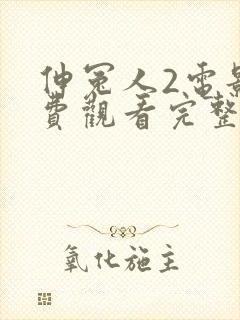 伸冤人2電影
費觀看完整
氧化施主